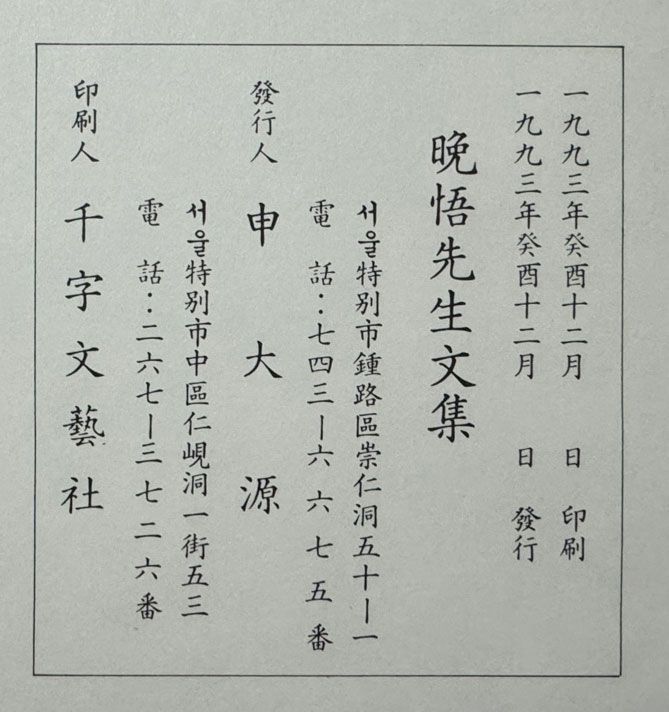 一九九三年癸酉十二月 日 印刷
一九九三年癸酉十二月 日 發行
晩悟先生文集
서울特別市鍾路區崇仁洞五十一一
電 話：七四三一六六七五番
發行人 申大源
서울特別市中區仁峴洞一街五三
電 話：二六七一三七二六番
印刷人 千字文藝社